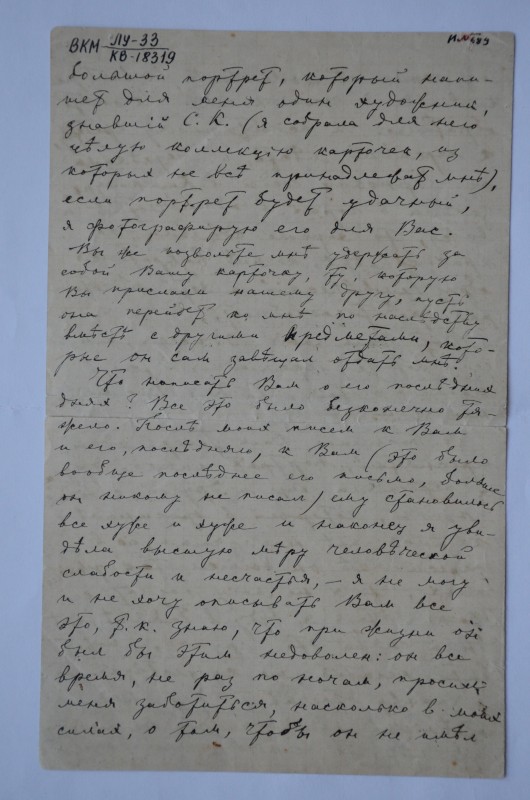 ВКМ ЛУ-33
КВ-18319
большой портрет, который напи-
шет для меня один художник,
знавшій С. К. (я собрала для него
цѣлую коллекцію карточек, из
которых не всѣ принадлежат мнѣ),
если портрет будет удачный,
я фотографирую его для Вас.
Вы же позвольте мнѣ удержать за
собой Вашу карточку, ту, которую
Вы прислали нашему другу, пусть
она перейдет ко мнѣ по наслѣдству
вмѣстѣ с другими предметами, кото-
рые он сам завѣщал отдать мнѣ.
Что написать Вам о его послѣдних
днях? Все это было безконечно тя-
жело. Послѣ моих писем к Вам
и его, послѣдняго, к Вам (это было
вообще послѣднее его письмо, больше
он никому не писал) ему становилось
все хуже и хуже и наконец я уви-
дѣла высшую мѣру человѣческой
слабости и несчастья, – я не могу
и не хочу описывать Вам все
это, т. к. знаю, что при жизни он
был бы этим недоволен: он все
время, не раз по ночам, просил
меня заботиться, насколько в моих
силах, о том, чтобы он не имѣл